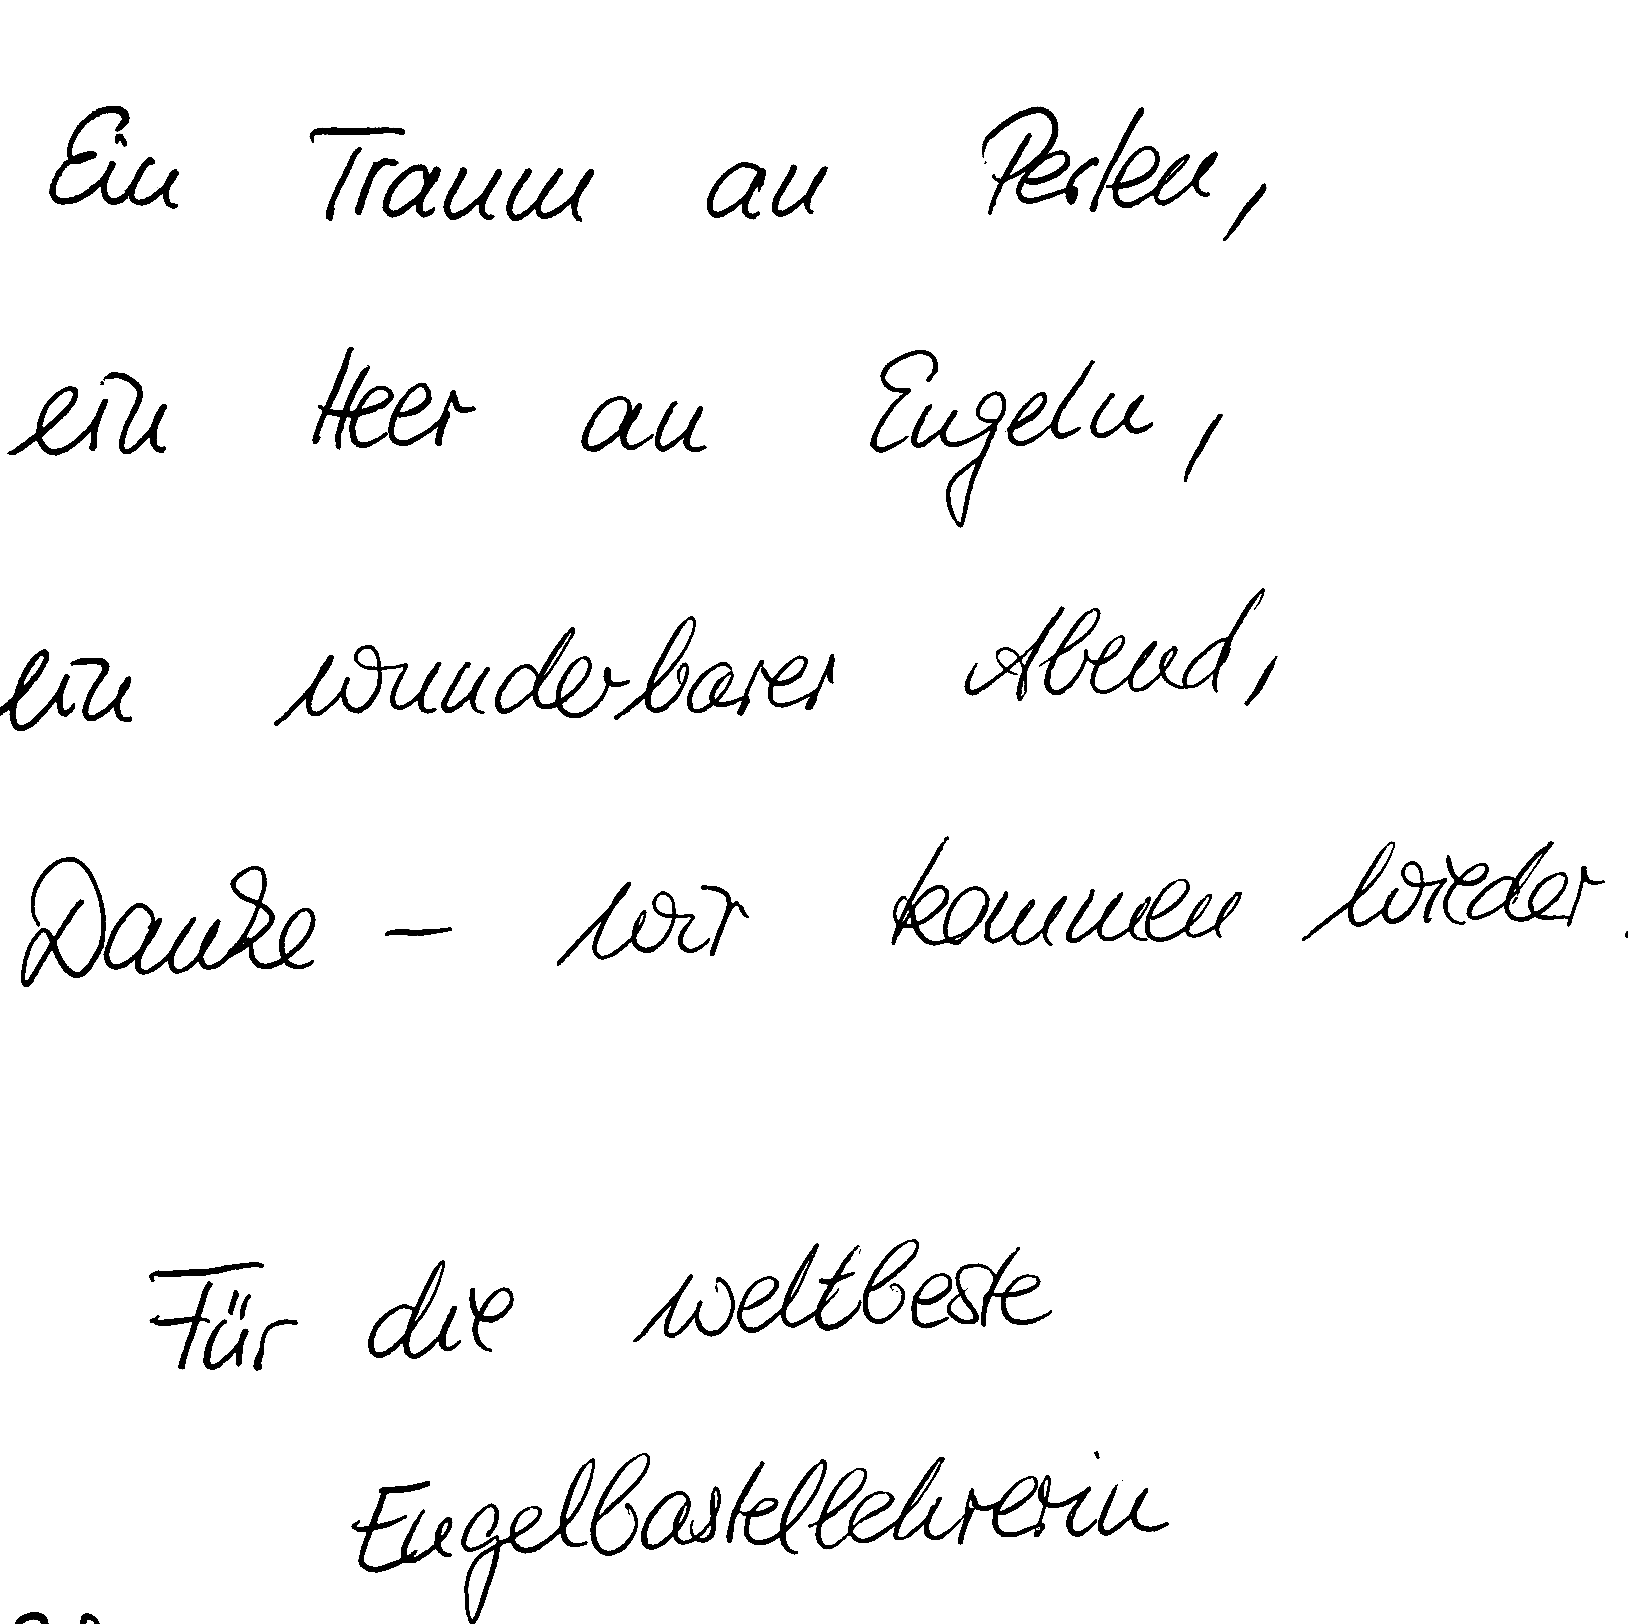 Ein Traum an Perlen,
ein Heer an Engeln,
ein wunderbarer Abend,
Danke – wir kommen wieder.
Für die weltbeste
Engelbastellehrerin